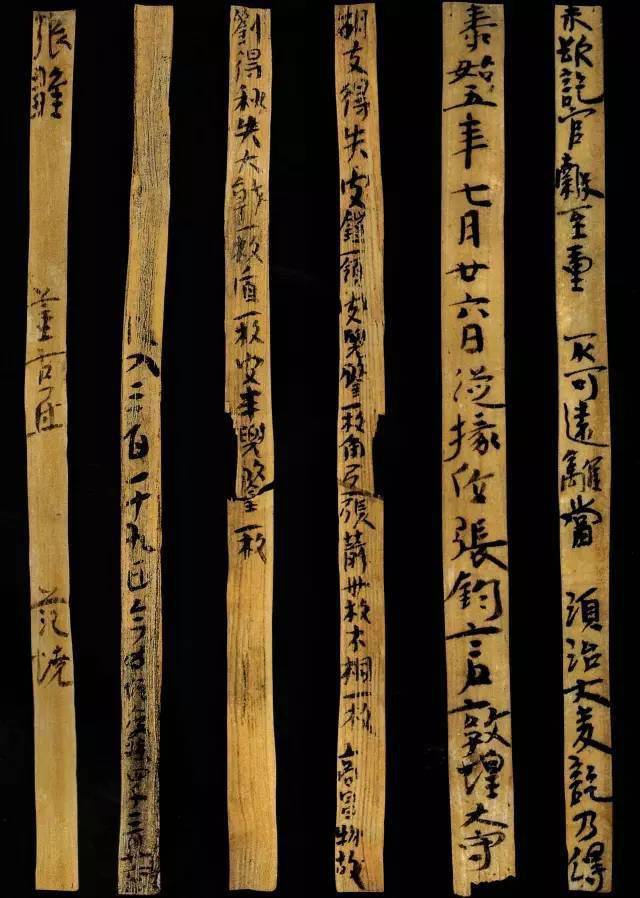 未欲訖官穀至重 不可遠離當 須治大麥訖乃得
泰始五年七月廿六日從掾位張鈞言敦煌大守
胡支得失皮鎧一領皮兜鍪一枚角弓一張箭卅枚木桐一枚 高昌物故
劉得秋失大一枚盾一枚皮兜鍪一枚
入三百一十九匹今
張雛 董古 范燒